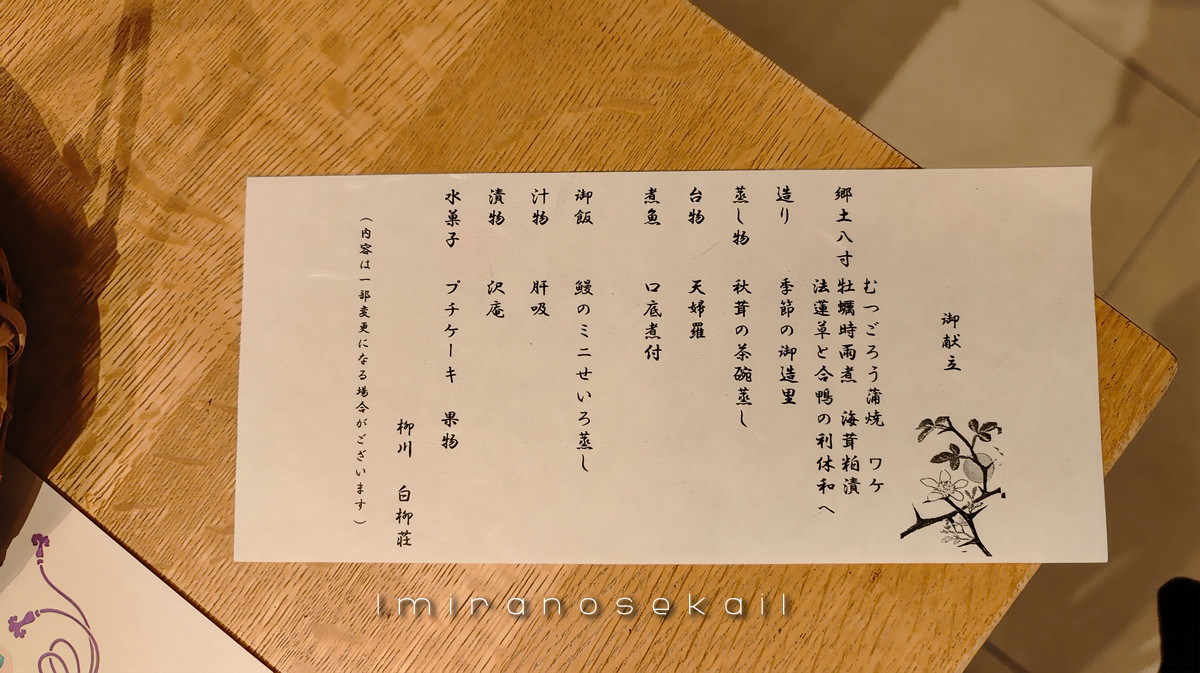 御献立
むつごろう蒲焼　ワケ
郷土八寸　牡蠣時雨煮　海茸粕漬
法蓮草と合鴨の利休和へ
造り　季節の御造里
蒸し物　秋茸の茶碗蒸し
台物　天婦羅
煮魚　口底煮付
御飯　鰻のミニせいろ蒸し
汁物　肝吸
漬物　沢庵
水菓子　プチケーキ　果物
柳川　白柳荘
（内容は一部変更になる場合がございます）
Imiranosekail